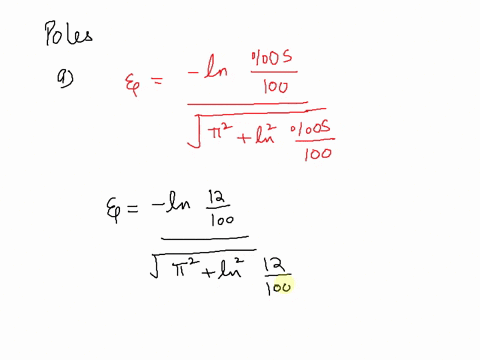 Poles
a) ξ = -ln %OS/100 / √(π² + ln² %OS/100)
ξ = -ln 12/100 / √(π² + ln² 12/100)